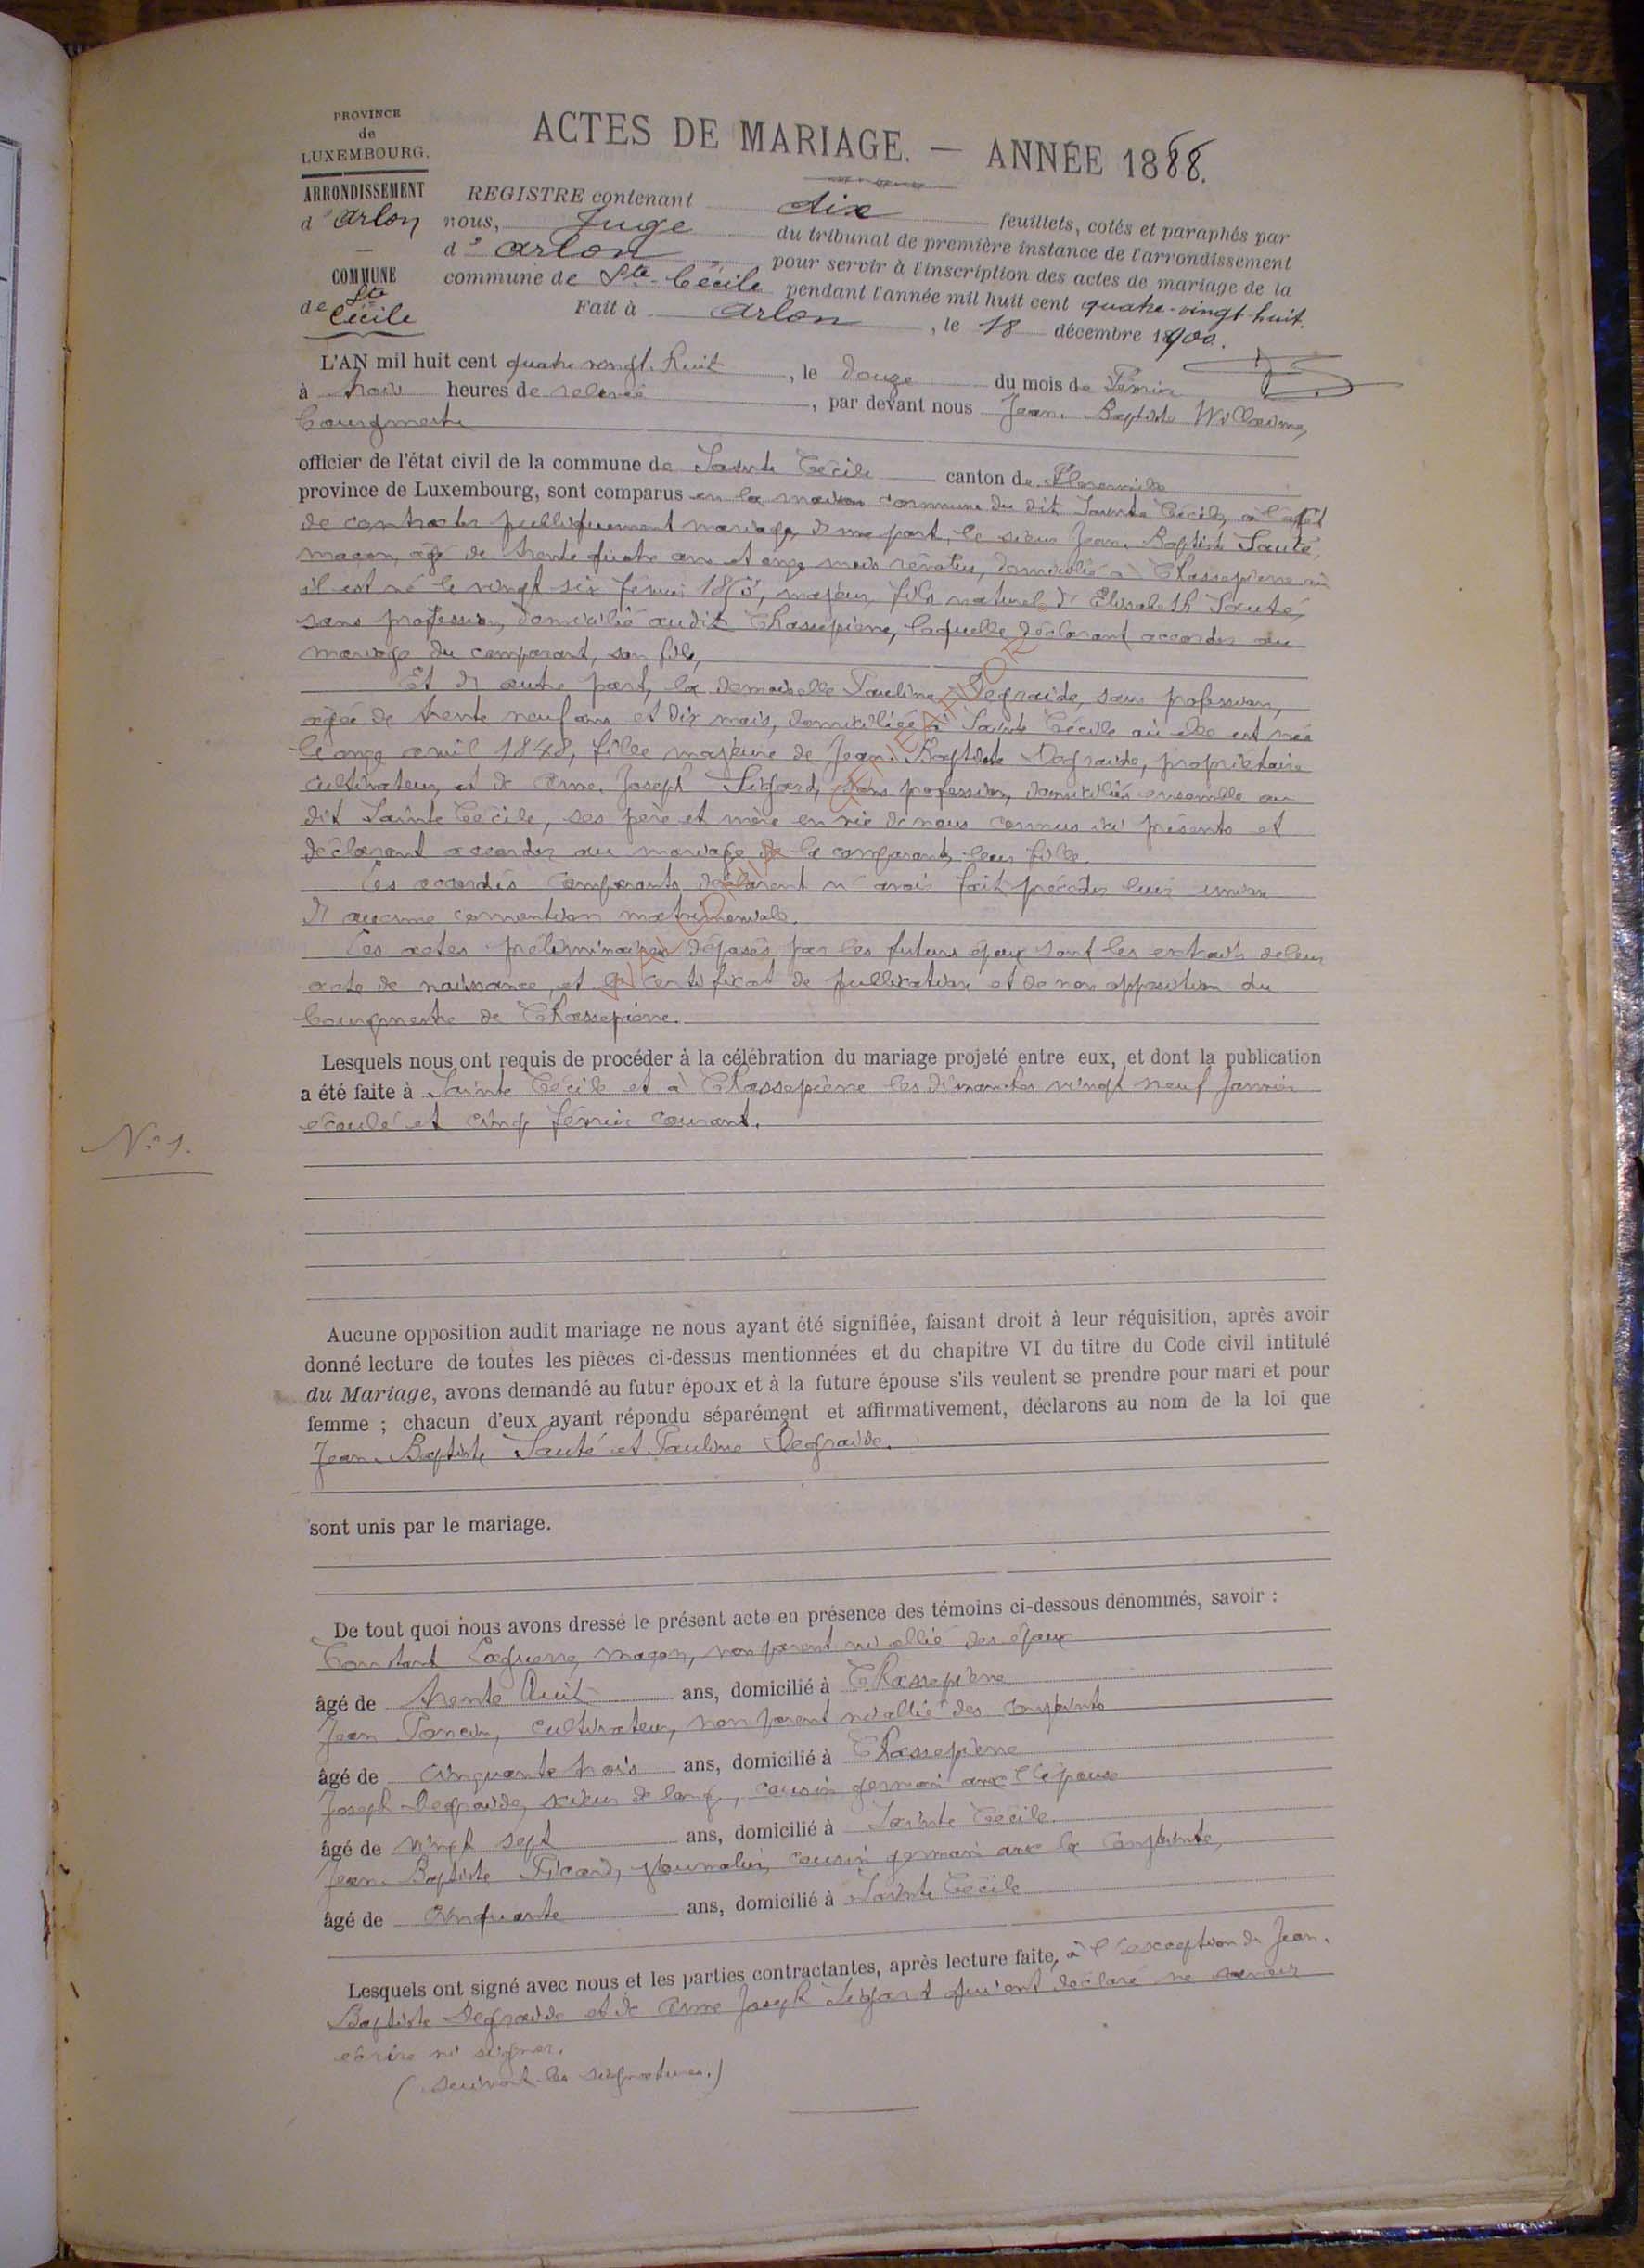 PROVINCE
de
LUXEMBOURG.
ARRONDISSEMENT
d'Arlon
COMMUNE
de Ste
Cécile
ACTES DE MARIAGE. — ANNÉE 1888.
REGISTRE contenant dix feuillets, cotés et paraphés par
nous, Juge du tribunal de première instance de l'arrondissement
d'Arlon pour servir à l'inscription des actes de mariage de la
commune de Ste-Cécile pendant l'année mil huit cent quatre-vingt-huit.
Fait à Arlon, le 18 décembre 1900.
L'AN mil huit cent quatre vingt huit, le douze du mois de Février
à trois heures de relevée, par devant nous Jean-Baptiste Willaime,
bourgmestre
officier de l'état civil de la commune de Sainte Cécile canton de Florenville
province de Luxembourg, sont comparus en la maison commune du dit Sainte Cécile, à l'effet
de contracter publiquement mariage, d'une part, le sieur Jean-Baptiste Sauté,
maçon, âgé de trente quatre ans et onze mois révolus, domicilié à Chassepierre où
il est né le vingt six février 1853, majeur, fils naturel d'Elisabeth Sauté,
sans profession, domicilié audit Chassepierre, laquelle déclarant accorder au
mariage du comparant, son fils,
Et d'autre part, la demoiselle Pauline Degraide, sans profession,
agée de trente neuf ans et dix mois, domiciliée à Sainte Cécile où elle est née
le onze avril 1848, fille majeure de Jean-Baptiste Degraide, propriétaire
cultivateur, et de Anne-Joseph sans profession, domiciliés ensemble au
dit Sainte Cécile, ses père et mère en vie de nous connus ici présents et
déclarant accorder au mariage de la comparante, leur fille.
Les accordés comparants déclarent n'avoir fait précéder leur union
d'aucune convention matrimoniale.
Les actes préliminaires déposés par les futurs époux sont les extraits de leur
acte de naissance, et le certificat de publication et de non opposition du
bourgmestre de Chassepierre.
Lesquels nous ont requis de procéder à la célébration du mariage projeté entre eux, et dont la publication
a été faite à Sainte Cécile et à Chassepierre les dimanches vingt neuf Janvier
écoulé et cinq février courant.
No 1.
Aucune opposition audit mariage ne nous ayant été signifiée, faisant droit à leur réquisition, après avoir
donné lecture de toutes les pièces ci-dessus mentionnées et du chapitre VI du titre du Code civil intitulé
du Mariage, avons demandé au futur époux et à la future épouse s'ils veulent se prendre pour mari et pour
femme ; chacun d'eux ayant répondu séparément et affirmativement, déclarons au nom de la loi que
Jean-Baptiste Sauté et Pauline Degraide.
sont unis par le mariage.
De tout quoi nous avons dressé le présent acte en présence des témoins ci-dessous dénommés, savoir :
Constant Laguerre, maçon, non parent ni allié des époux
âgé de trente huit ans, domicilié à Chassepierre
Jean Poncin, cultivateur, non parent ni allié des conjoints
âgé de cinquante trois ans, domicilié à Chassepierre
Joseph Degraide, scieur de long, cousin germain avec l'épouse
âgé de vingt sept ans, domicilié à Sainte Cécile.
Jean-Baptiste Picard, journalier, cousin germain avec la conjointe,
âgé de cinquante ans, domicilié à Sainte Cécile
Lesquels ont signé avec nous et les parties contractantes, après lecture faite, à l'exception de Jean-
Baptiste Degraide et de Anne Joseph qui ont déclaré ne savoir
écrire ni signer.
(suivent les signatures.)